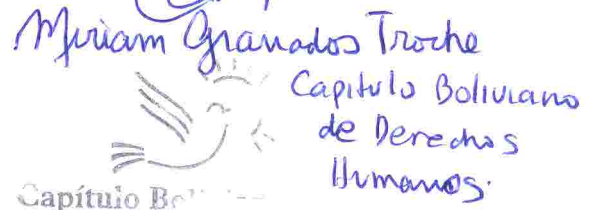 Miriam Granados Troche
Capitulo Boliviano
de Derechos
Humanos.
Capítulo